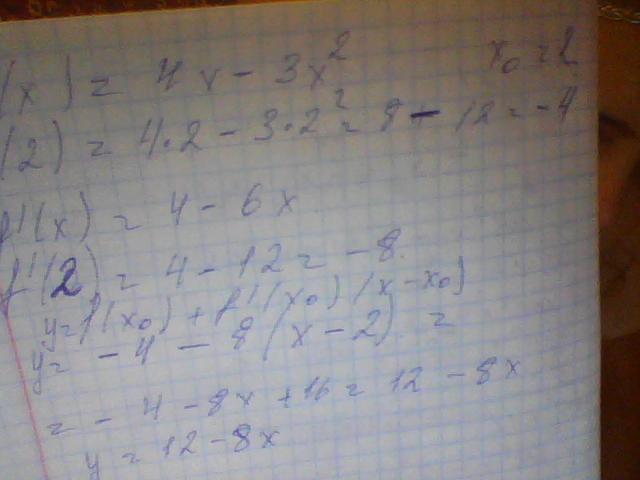 (x) = 4x - 3x² x₀ = 2
(2) = 4·2 - 3·2² = 8 - 12 = -4
f'(x) = 4 - 6x
f'(2) = 4 - 12 = -8
y = f(x₀) + f'(x₀)(x - x₀)
y = -4 - 8(x - 2) =
= -4 - 8x + 16 = 12 - 8x
y = 12 - 8x